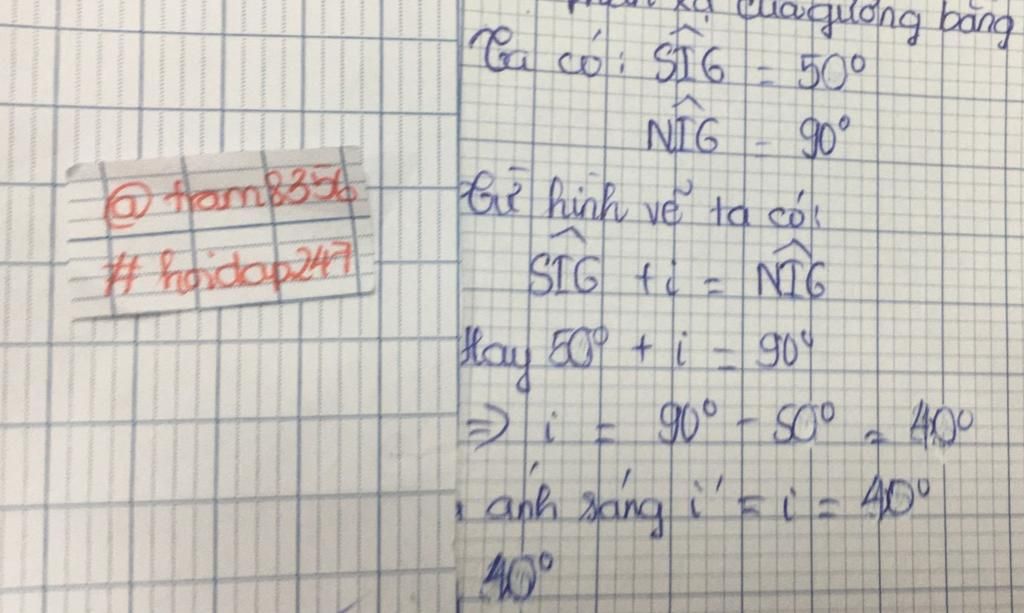 @ tram8356
# hoidap247
xạ của gương bằng
Ta có: SIG = 50°
NIG = 90°
Từ hình vẽ ta có:
SIG + i = NIG
Hay 50° + i = 90°
=> i = 90° - 50° = 40°
ánh sáng i' = i = 40°
40°